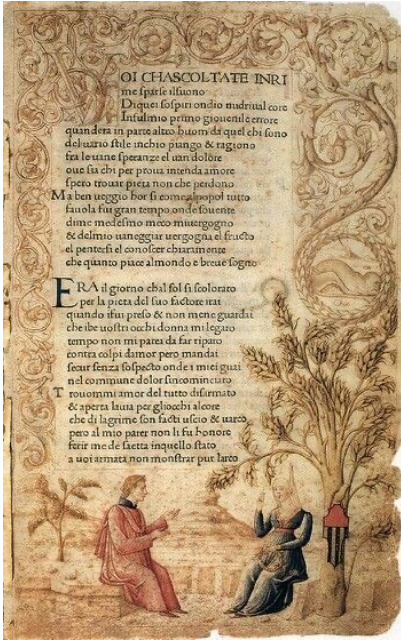 VOI CHASCOLTATE INRI
me sparse ilsuono
Di quei sospiri ondio nudriual core
Insulmio primo giouenile errore
quandera in parte altro huom da quel chi sono
del uario stile inchio piango & ragiono
fra le uane speranze el uan dolore
oue sia chi per proua intenda amore
spero trouar pieta non che perdono
Ma ben ueggio hor si come al popol tutto
fauola fui gran tempo onde souente
di me medesmo meco mi uergogno
& del mio uaneggiar uergogna el fructo
el pentersi el conoscer chiaramente
che quanto piace al mondo e breue sogno
ERA il giorno chal sol si scoloraro
per la pieta del suo factore irai
quando i fui preso & non mene guardai
che ibe uostri occhi donna mi legaro
tempo non mi parea da far riparo
contra colpi damor pero mandai
secur senza sospecto onde i miei guai
nel commune dolor sincominciaro
Trouommi amor del tutto disarmato
& aperta lauia per gliocchi alcore
che di lagrime son facti uscio & uarco
pero al mio parer non li fu honore
ferir me de saetta inquello stato
a uoi armata non mostrar pur larco